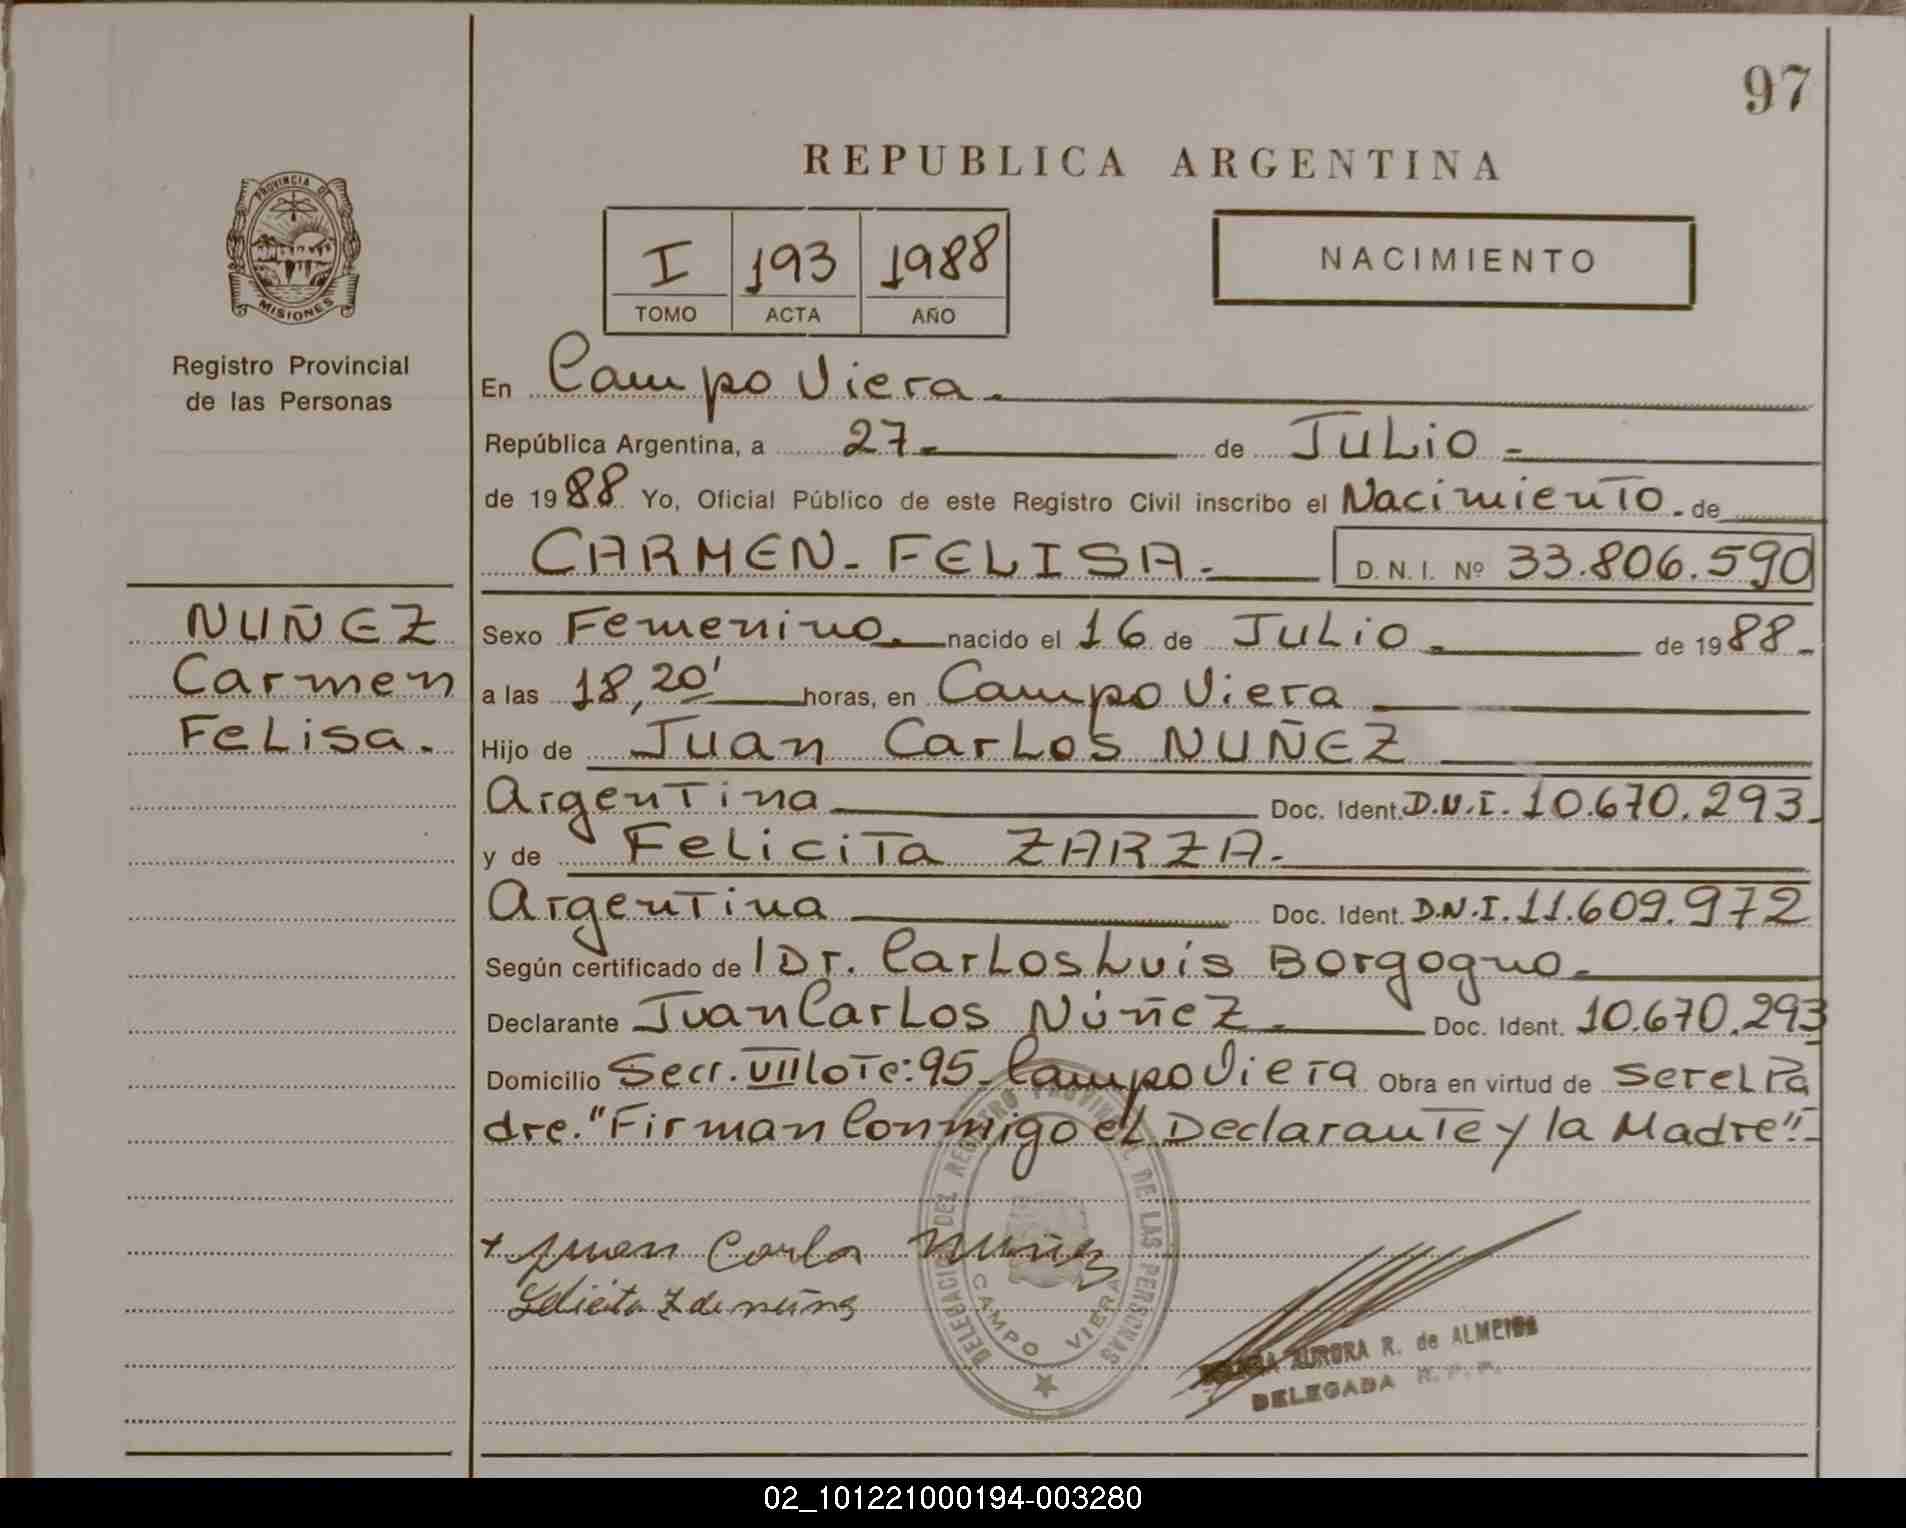 97
REPUBLICA ARGENTINA
PROVINCIA DE
MISIONES
Registro Provincial
de las Personas
I 193 1988
TOMO ACTA AÑO
NACIMIENTO
En Campo Viera.
República Argentina, a 27 de JULio
de 1988 Yo, Oficial Público de este Registro Civil inscribo el Nacimiento de
CARMEN FELISA. D. N. I. Nº 33.806.590
NUÑEZ
Carmen
FeLisa.
Sexo Femenino. nacido el 16 de JULio de 1988
a las 18,20' horas, en Campo Viera
Hijo de Juan CarLos NUÑEZ
Argentina Doc. Ident. D.N.I. 10.670.293
y de FeLiciTa ZARZA
Argentina Doc. Ident. D.N.I. 11.609.972
Según certificado de Dr. CarLos Luis Borgogno
Declarante Juan CarLos Núñez Doc. Ident. 10.670.293
Domicilio Secc. VII Lote: 95 Campo Viera Obra en virtud de ser el Pa
dre. "Firman Conmigo el Declarante y la Madre"
+ Juan Carlos Nuñez
Felicita Z de nuñez
DELEGACION DEL REGISTRO PROVINCIAL DE LAS PERSONAS
CAMPO VIERA
AURORA R. de ALMEIDA
DELEGADA R. P. P.
02_101221000194-003280